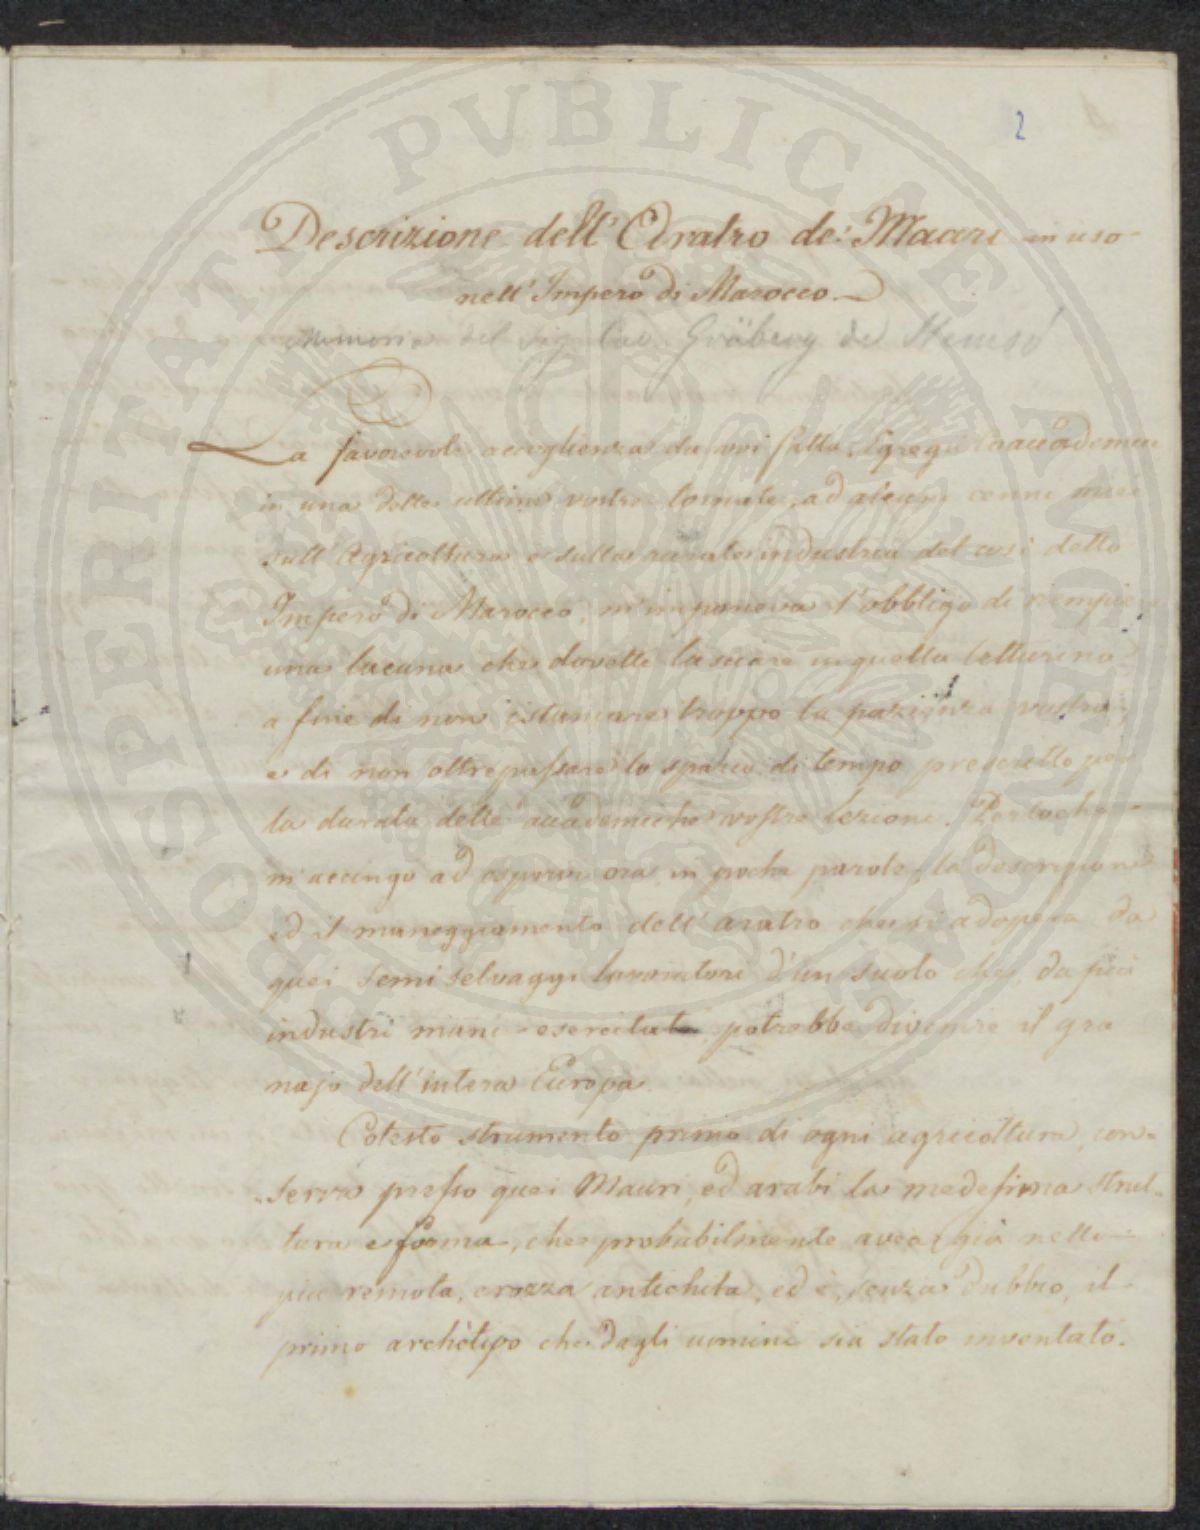 2
Descrizione dell'Aratro de' Mauri in uso
nell'Impero di Marocco
memoria del Sig. Cav. Gräberg de Hemsö
La favorevole accoglienza da voi fatta, Egregi Coaccademici
in una delle ultime vostre tornate, ad alcuni cenni miei
sull'Agricoltura e sulla rurale industria del così detto
Impero di Marocco, m'imponeva l'obbligo di riempiere
una lacuna che dovetti lasciare in quella letturina
a fine di non istancare troppo la pazienza vostra,
e di non oltrepassare lo spazio di tempo prescritto per
la durata delle accademiche vostre lezioni. Perloche
m'accingo ad esporvi ora in poche parole, la descrizione
ed il maneggiamento dell'aratro che si adopera da
quei semiselvaggi lavoratori d'un suolo che, da più
industri mani esercitato potrebbe divenire il gra
najo dell'intera Europa.
Cotesto strumento primo di ogni agricoltura, con-
serva presso quei Mauri, ed arabi la medesima strut-
tura e forma, che probabilmente avea già nella
più remota, e rozza antichità, ed è, senza dubbio, il
primo archètipo che dagli uomini sia stato inventato.
PROSPERITATI PUBLICAE AUGENDAE